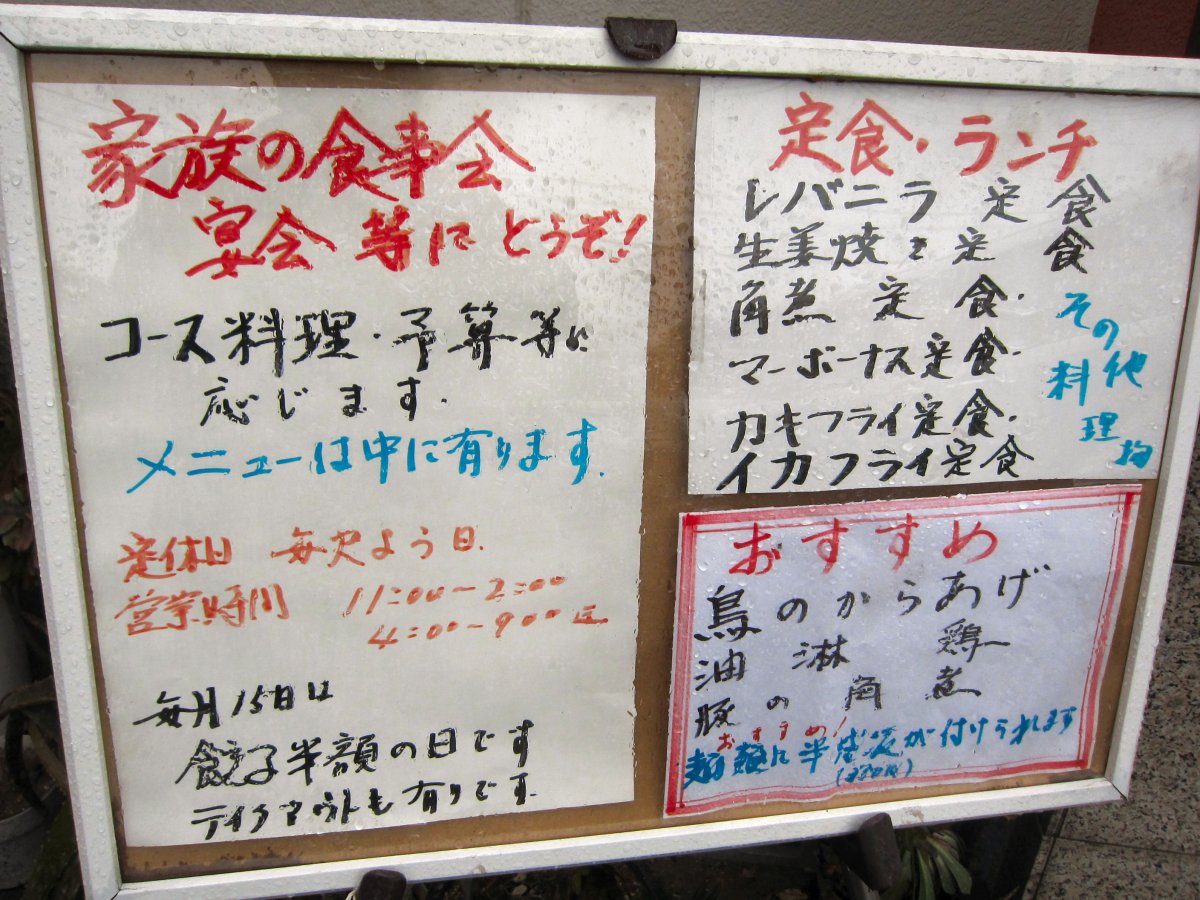 家族の食事会
宴会等にどうぞ!
コース料理・予算等に
応じます.
メニューは中に有ります.
定休日 毎火よう日.
営業時間 11:00〜2:00
4:00〜9:00迄
毎月15日は
餃子半額の日です
テイクアウトも有りです.
定食・ランチ
レバニラ定食
生姜焼き定食
角煮定食.
マーボーナス定食.
カキフライ定食.
イカフライ定食
その他
料理
おすすめ
鳥のからあげ
油淋鶏
豚の角煮
おすすめ!
麺類に半炒飯が付けられます